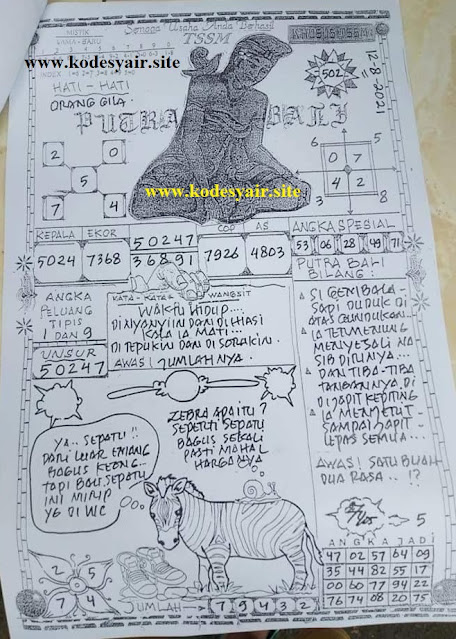 Semoga Usaha Anda Berhasil
TSSM
MISTIK
LAMA - BARU
KHUSUS TSSM
www.kodesyair.site
INDEX
HATI - HATI
ORANG GILA.
502
12-8-2021
PUTRA BALI
2 0
5
7 4
6 5
0 7
4 2
3 8
www.kodesyair.site
KEPALA EKOR
5024 7368
50247
36891
COP AS
7926 4803
ANGKA SPESIAL
53 06 28 49 71
PUTRA BALI
BILANG :
ANGKA
PELUANG
TIPIS
1 DAN 9
UNSUR
50247
KATA - KATA WANGSIT
WAKTU HIDUP....
DINYANYIIN DAN DI HIASI
KALA IA MATI...
DI TEPUKIN DAN DI SORAKIN.
AWAS! JUMLAHNYA.
SI GEMBALA -
SAPI DUDUK DI
ATAS GUNDUKAN..
IA TERMENUNG
MENYESALI NA
SIB DIRINYA...
DAN TIBA-TIBA
TANGANNYA DI
DI JAPIT KEPITING
IA MENJERIT -
SAMPAI JAPIT -
LEPAS SEMUA...
AWAS! SATU BUAH
DUA RASA.. !?
YA.. SEPATU!!
DARI LUAR EMANG
BAGUS KEONG..
TAPI BAU SEPATU
INI MIRIP
YG DI WC
ZEBRA APA ITU?
SEPERTI SEPATU
BAGUS SEKALI
PASTI MAHAL
HARGANYA
5
ANGKA JADI
47 02 57 64 09
35 44 82 55 17
00 60 77 94 22
76 74 08 20 75
2 5
7 4
JUMLAH 7 9 4 3 2